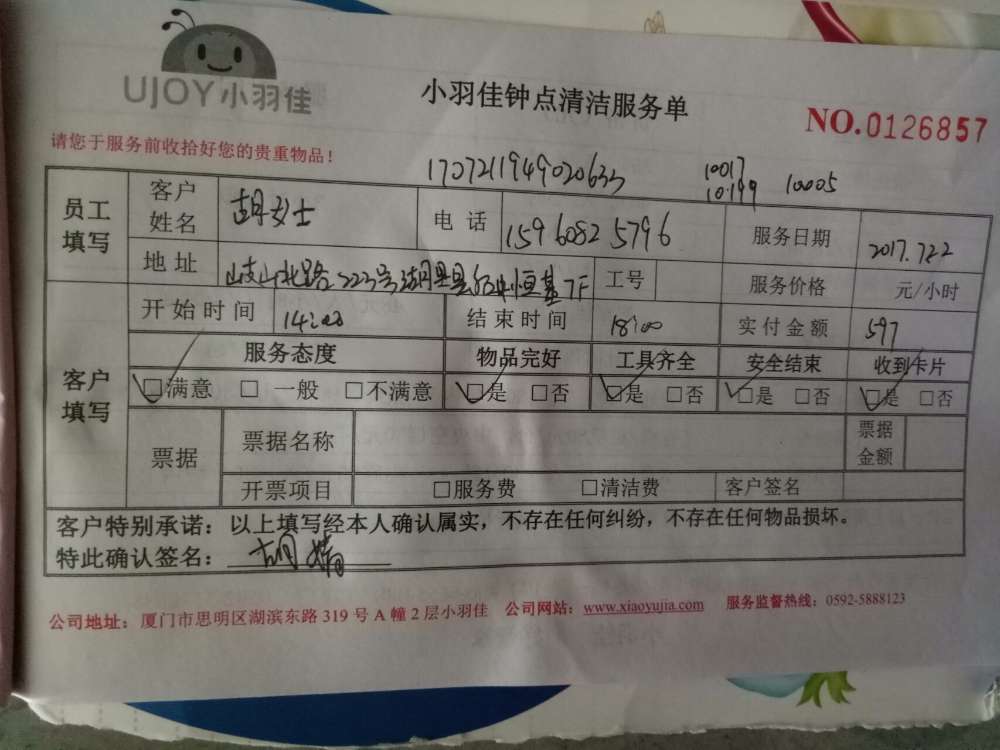 UJOY小羽佳
小羽佳钟点清洁服务单
NO.0126857
请您于服务前收拾好您的贵重物品！
1707211949020633
10017
10199 10005
员工填写 客户姓名 胡女士 电话 15960825796 服务日期 2017.7.22
地址 岐山北路223号 恒基7F 工号 服务价格 元/小时
客户填写 开始时间 14:00 结束时间 18:00 实付金额 597
服务态度 物品完好 工具齐全 安全结束 收到卡片
☑满意 □一般 □不满意 ☑是 □否 ☑是 □否 ☑是 □否 ☑是 □否
票据 票据名称 票据金额
开票项目 □服务费 □清洁费 客户签名
客户特别承诺：以上填写经本人确认属实，不存在任何纠纷，不存在任何物品损坏。
特此确认签名：胡
公司地址：厦门市思明区湖滨东路319号A幢2层小羽佳 公司网站：www.xiaoyujia.com 服务监督热线：0592-5888123